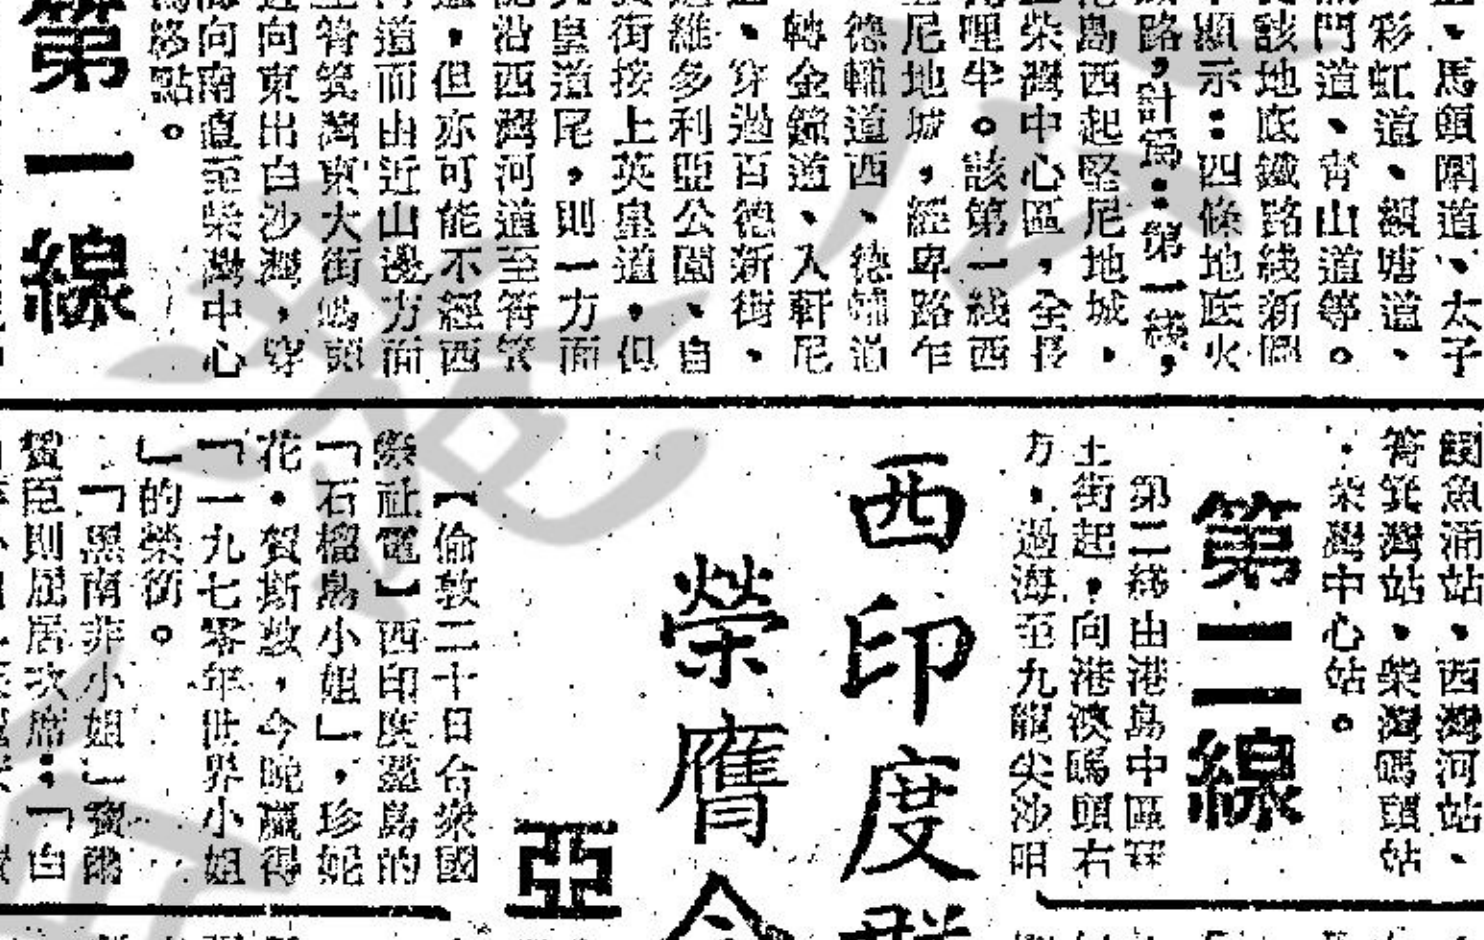 、馬頭圍道、太子
彩虹道、觀塘道、
門道、青山道等。
該地底鐵路綫新圖
顯示：四條地底火
路，計爲：第一綫，
島西起堅尼地城，
柴灣中心區，全長
哩半。該第一綫西
尼地城，經卑路乍
德輔道西、德輔道
轉金鐘道、入軒尼
、穿過百德新街、
維多利亞公園、自
街接上英皇道，但
皇道尾，則一方面
沿西灣河道至筲箕
，但亦可能不經西
道而由近山邊方面
筲箕灣東大街碼頭
向東出白沙灣，穿
向南直至柴灣中心
爲終點。
第一線
鰂魚涌站、西灣河站、
筲箕灣站、柴灣碼頭站
、柴灣中心站。
第二線
第二綫由港島中區雪
士街起，向港澳碼頭右
方，過海至九龍尖沙咀
西印度群
榮膺今
亞
【倫敦二十日合衆國
際社電】西印度羣島的
「石榴島小姐」，珍妮
花・賀斯敦，今晚贏得
「一九七零年世界小姐
」的榮銜。
「黑南非小姐」寶爾
賀臣則屈居次席：「白